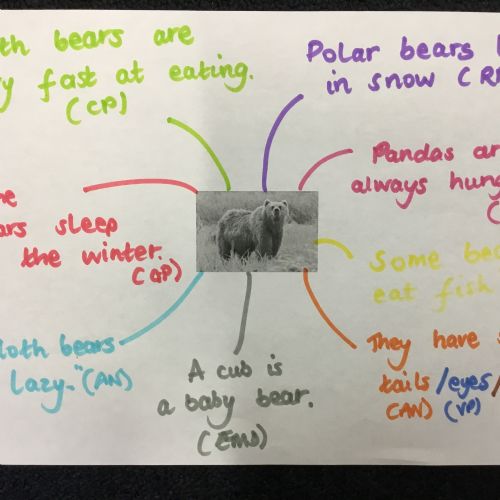 th bears are
y fast at eating.
(CP)
Polar bears
in snow (R
Pandas ar
always hung
(
e
ars sleep
the winter.
(GP)
Some be
eat fish
loth bears
lazy." (AN)
A cub is
a baby bear.
(EMW)
They have s
tails/eyes/
(AN) (VP)